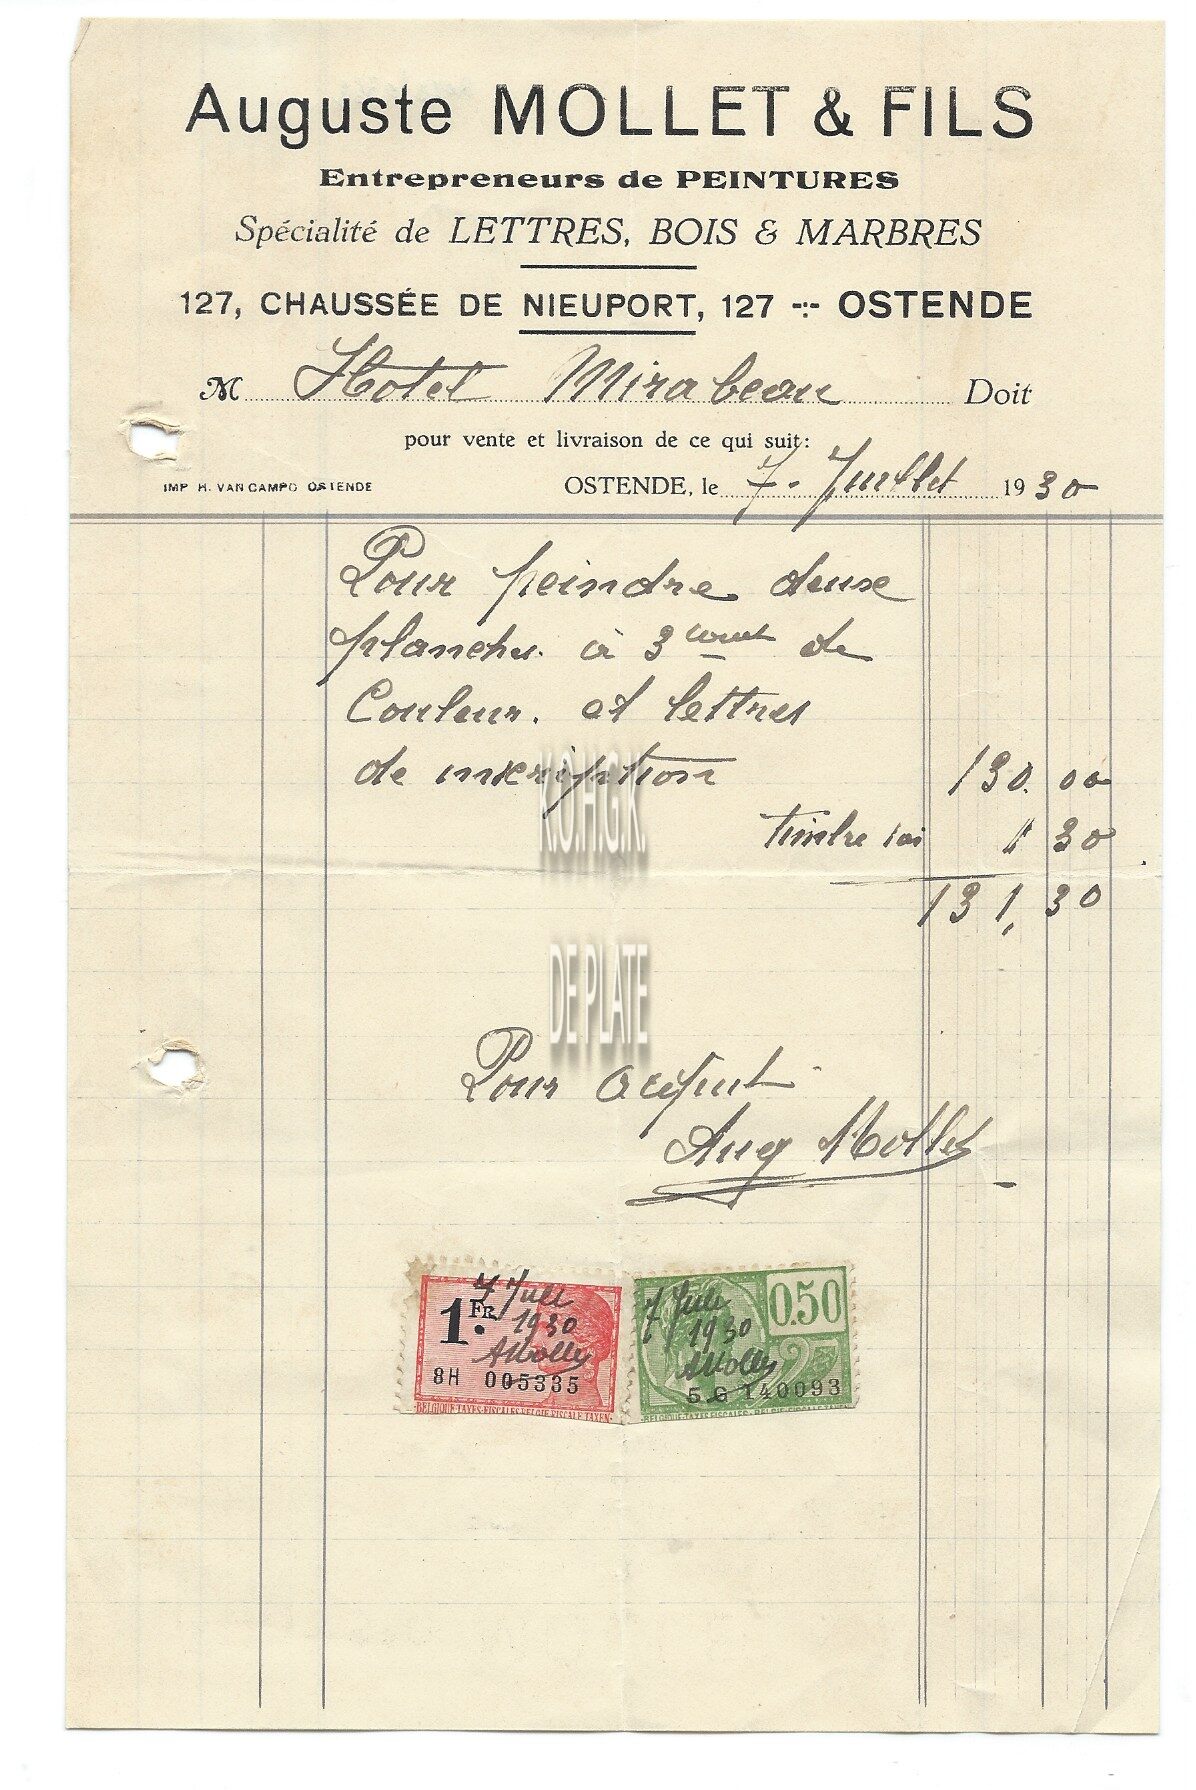 Auguste MOLLET & FILS
Entrepreneurs de PEINTURES
Spécialité de LETTRES, BOIS & MARBRES
127, CHAUSSÉE DE NIEUPORT, 127 -:- OSTENDE
M Hotel Mirabeau Doit
pour vente et livraison de ce qui suit:
IMP H. VAN CAMPO OSTENDE
OSTENDE, le 7 - Juillet 1930
Pour peindre deuse
planches à 3 de
Couleur. et lettres
de inscription 130.00
timbre 1 30
131,30
K.O.H.G.K.
DE PLATE
Pour acquit
Aug Mollet
1 FR. 7 Juli 1930 AMollet
8H 005335
BELGIQUE-TAXES-FISCALES BELGIE-FISCALE TAXEN
7 Juli 1930 AMollet 0.50
5 G 140093
BELGIQUE-TAXES FISCALES - BELGIE-FISCALE TAXEN